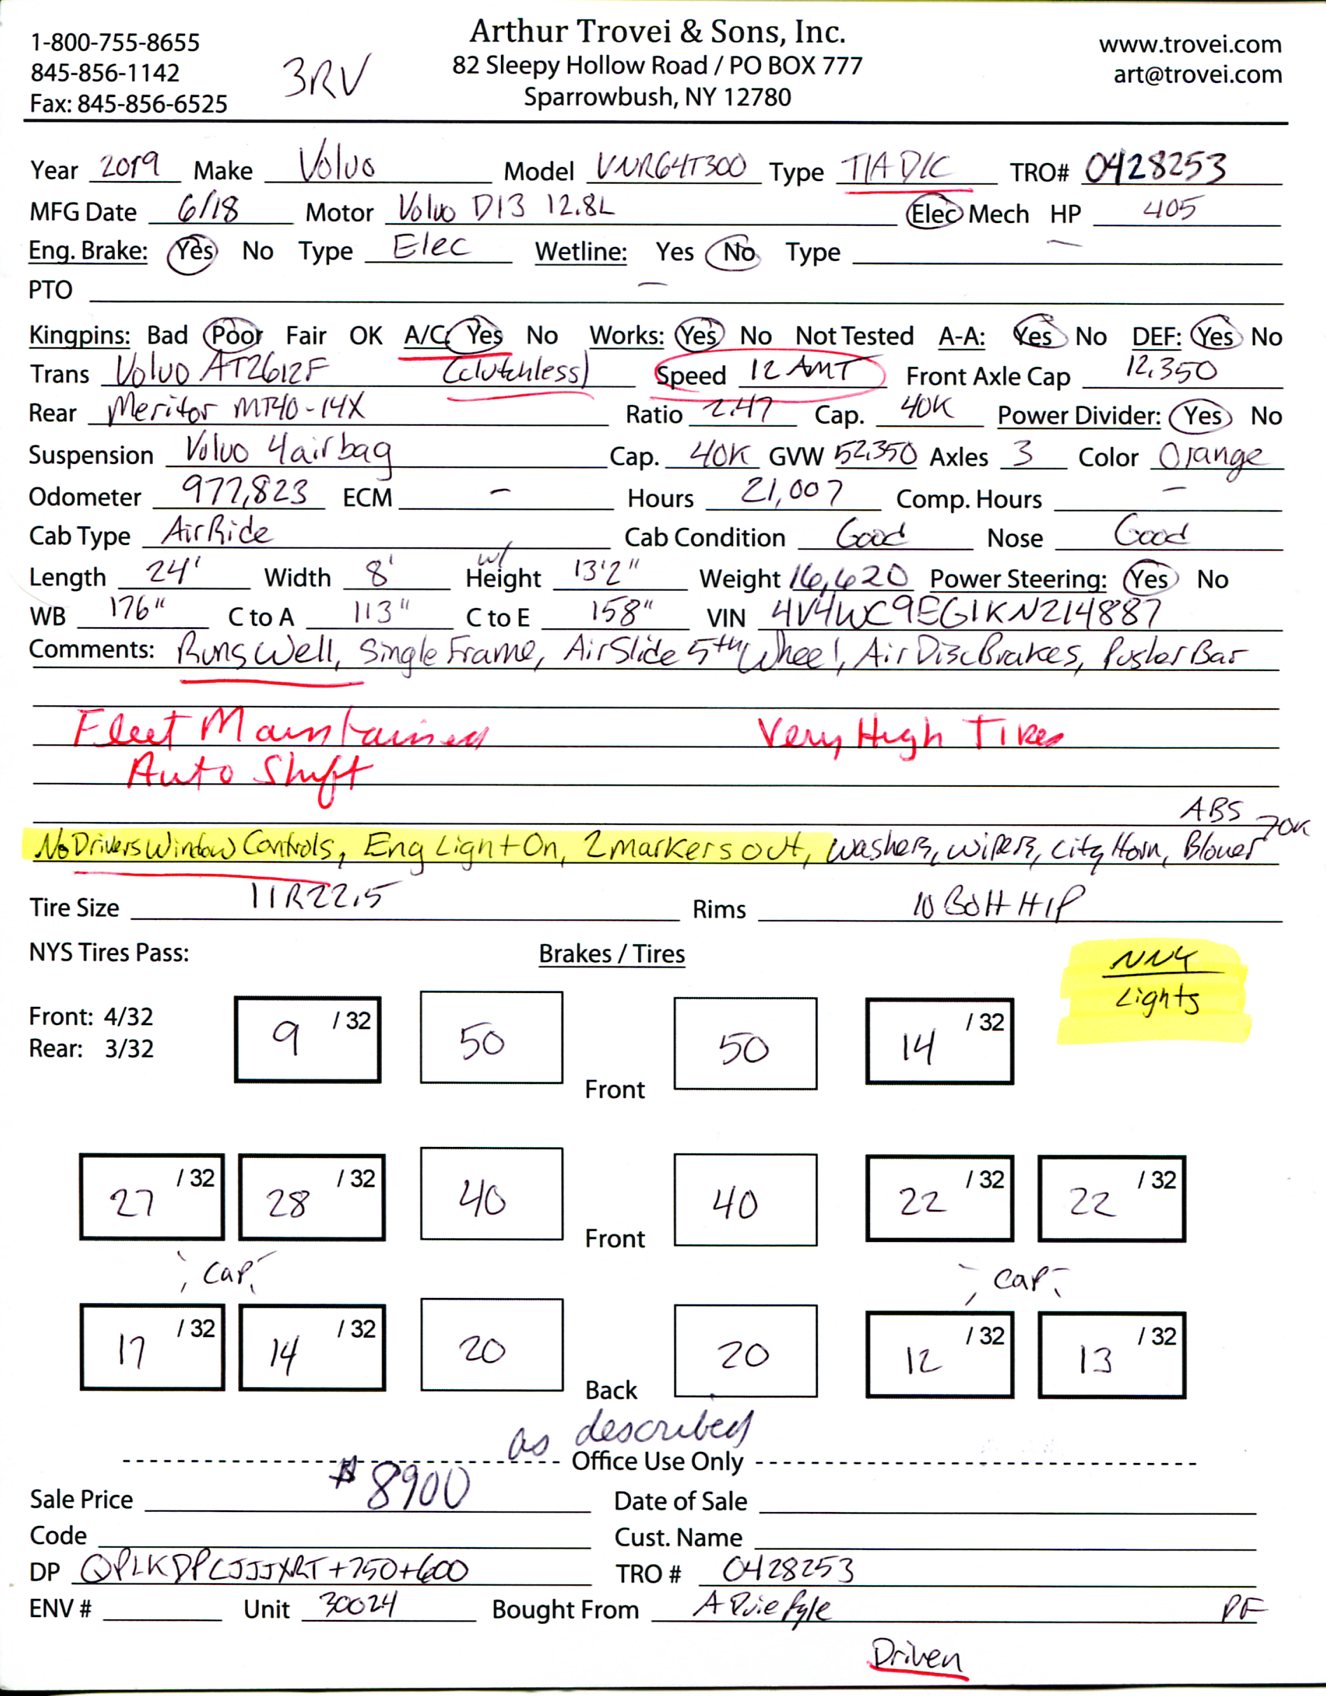 1-800-755-8655
845-856-1142
Fax: 845-856-6525
3RV
Arthur Trovei & Sons, Inc.
82 Sleepy Hollow Road / PO BOX 777
Sparrowbush, NY 12780
www.trovei.com
art@trovei.com
Year 2019 Make Volvo Model VNR64T300 Type T/A D/C TRO# 0428253
MFG Date 6/18 Motor Volvo D13 12.8L Elec Mech HP 405
Eng. Brake: Yes No Type Elec Wetline: Yes No Type —
PTO —
Kingpins: Bad Poor Fair OK A/C: Yes No Works: Yes No Not Tested A-A: Yes No DEF: Yes No
Trans Volvo AT2612F (clutchless) Speed 12 AMT Front Axle Cap 12,350
Rear Meritor MT40-14X Ratio 2.47 Cap. 40K Power Divider: Yes No
Suspension Volvo 4 airbag Cap. 40K GVW 52,350 Axles 3 Color Orange
Odometer 977,823 ECM – Hours 21,007 Comp. Hours –
Cab Type Air Ride Cab Condition Good Nose Good
Length 24' Width 8' w/ Height 13'2" Weight 16,620 Power Steering: Yes No
WB 176" C to A 113" C to E 158" VIN 4V4WC9EG1KN214887
Comments: Runs Well, Single Frame, Air Slide 5th Wheel, Air Disc Brakes, Pusher Bar
Fleet Maintained Very High Tires
Auto Shift
ABS
No Drivers Window Controls, Eng Light On, 2 markers out, washers, wipers, city Horn, Blower
Tire Size 11R22.5 Rims 10 Bolt H/P
NYS Tires Pass: Brakes / Tires NNY
Lights
Front: 4/32
Rear: 3/32
9 /32 50 Front 50 14 /32
27 /32 28 /32 40 Front 40 22 /32 22 /32
cap cap
17 /32 14 /32 20 Back 20 12 /32 13 /32
as described
Office Use Only
Sale Price $8900 Date of Sale
Code Cust. Name
DP QPLKDPLJJJXRT+750+600 TRO # 0428253
ENV # Unit 30024 Bought From A Duie Pyle PF
Driven